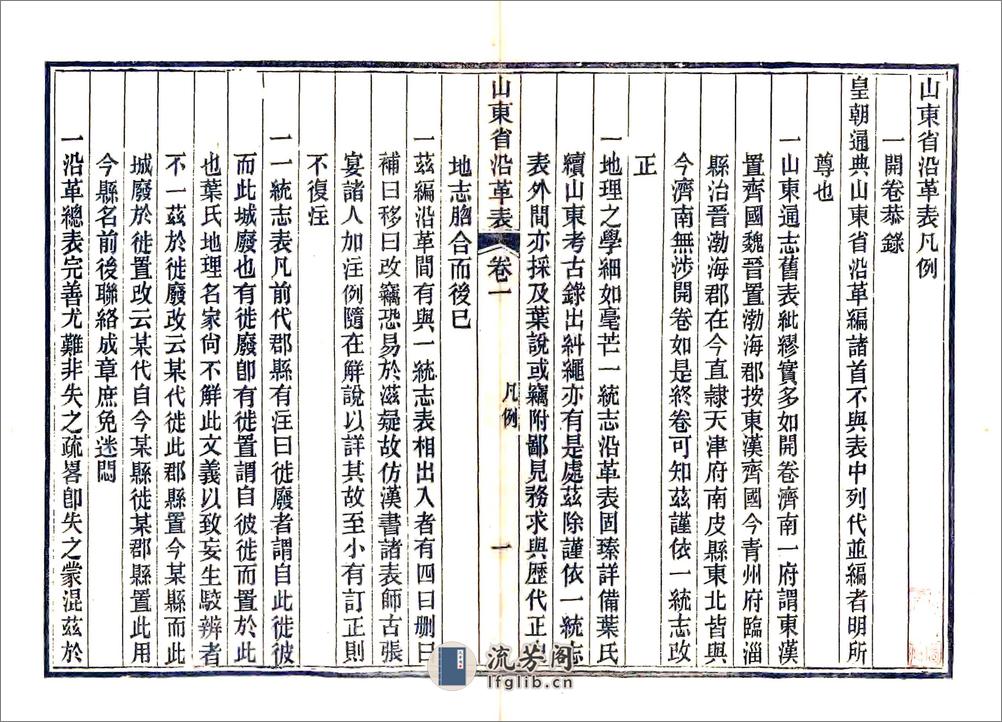 山東省沿革表凡例
一開卷恭錄
皇朝通典山東省沿革編諸首不與表中列代並編者明所
尊也
一山東通志舊表紕繆實多如開卷濟南一府謂東漢
置齊國魏晉置渤海郡按東漢齊國今青州府臨淄
縣治晉渤海郡在今直隷天津府南皮縣東北皆與
今濟南無涉開卷如是終卷可知茲謹依一統志改
正
一地理之學細如毫芒一統志沿革表固臻詳備葉氏
續山東考古錄出糾繩亦有是處茲除謹依一統志
表外間亦採及葉說或竊附鄙見務求與歷代正史
山東省沿革表 卷一 凡例 一
地志脗合而後已
一茲編沿革間有與一統志表相出入者有四曰删曰
補曰移曰改竊恐易於滋疑故仿漢書諸表師古張
宴諸人加注例隨在解說以詳其故至小有訂正則
不復注
一一統志表凡前代郡縣有注曰徙廢者謂自此徙彼
而此城廢也有徙廢卽有徙置謂自彼徙而置於此
也葉氏地理名家尙不解此文義以致妄生駁辨者
不一茲於徙廢改云某代徙此郡縣置今某縣而此
城廢於徙置改云某代自今某縣徙某郡縣置此用
今縣名前後聯絡成章庶免迷悶
一沿革總表完善尤難非失之疏畧卽失之蒙混茲於
流芳阁
lfglib.cn